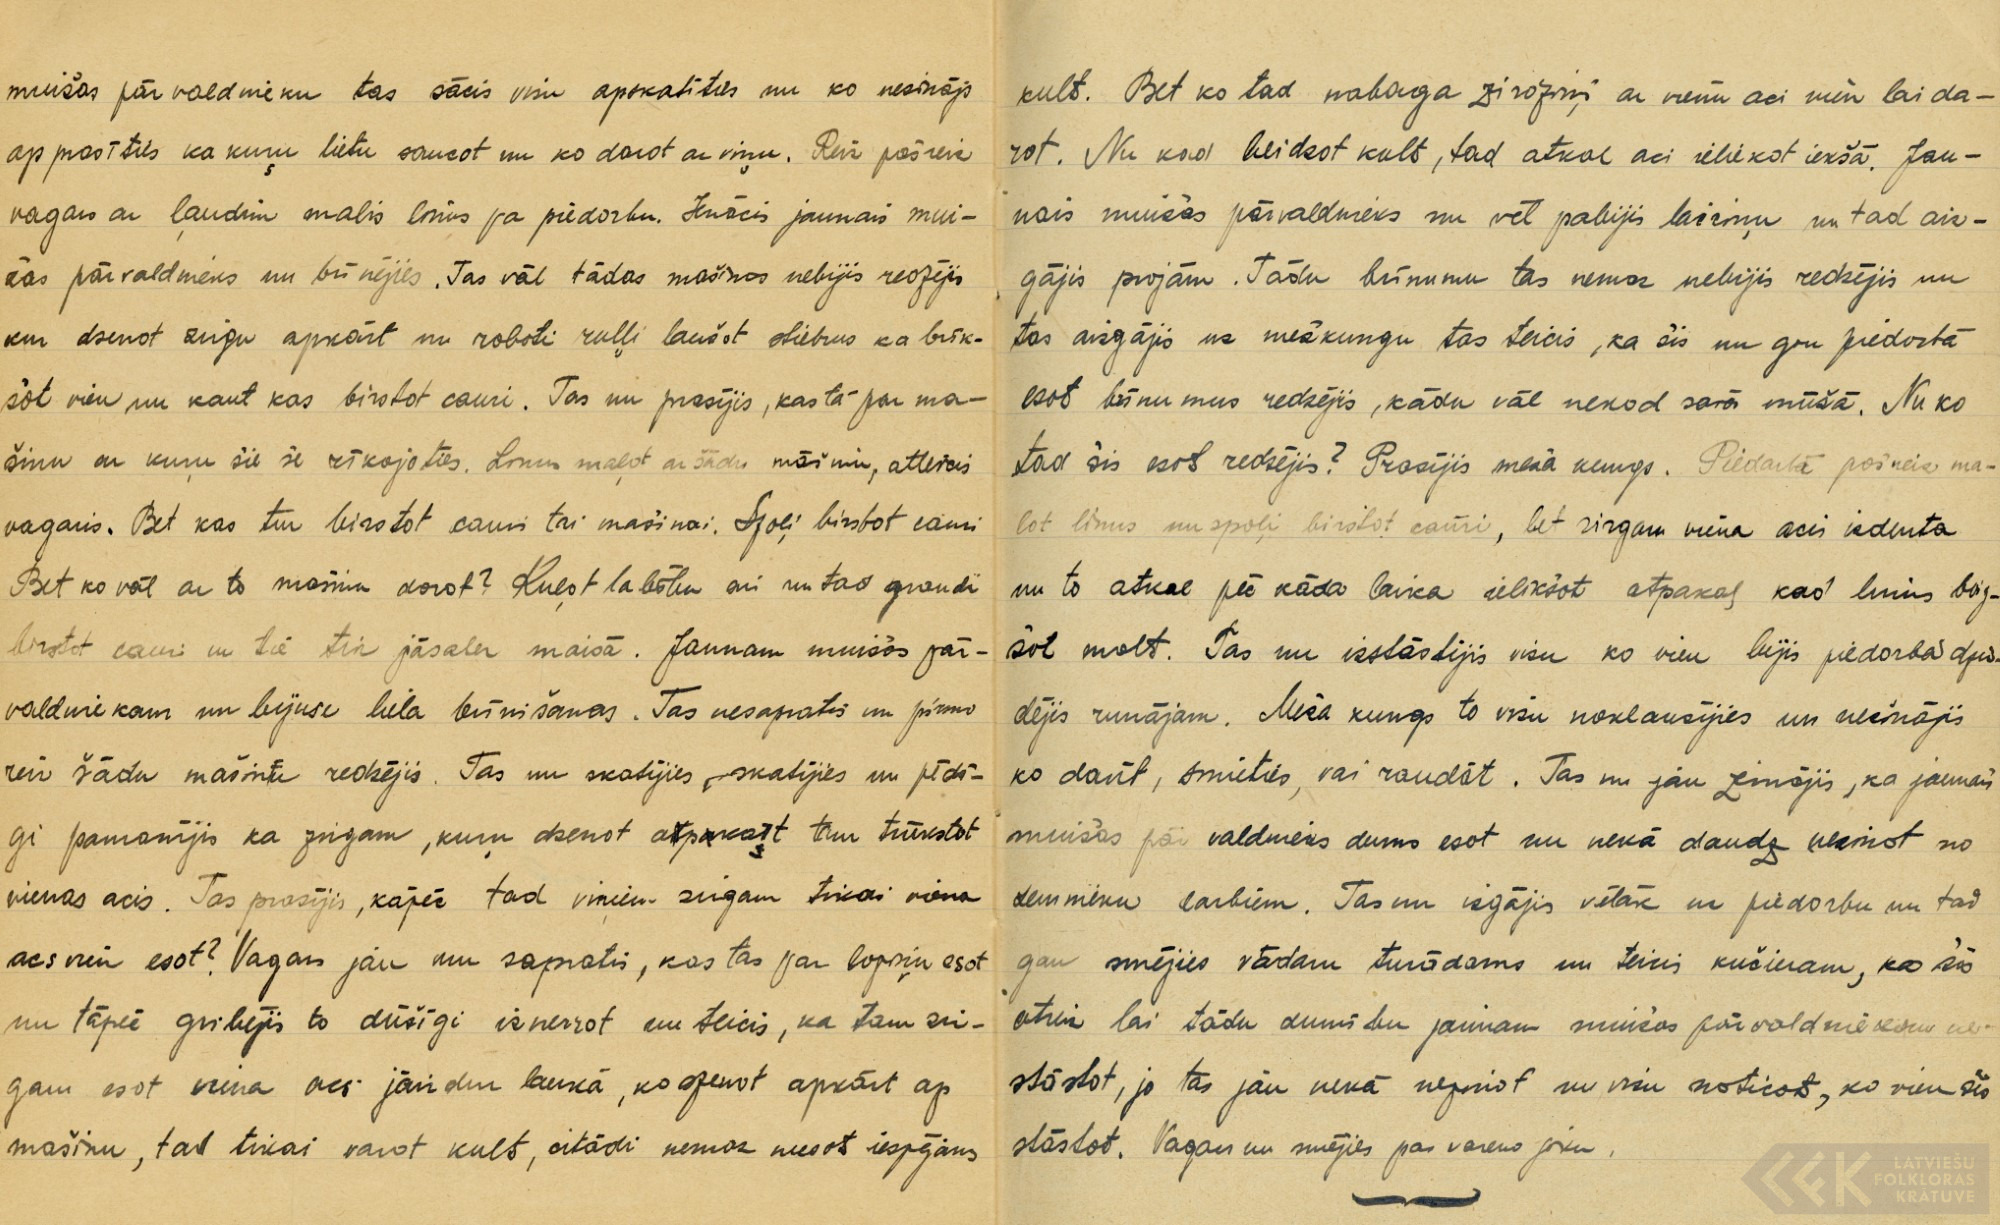 muižas pārvaldnieku tas sācis visu apskatīties un ko nezinājs
apprasīties kā kuŗu lietu saucot un ko darot ar viņu. Reiz pašreiz
vagars ar ļaudīm malis linus pa piedarbu. Ienācis jaunais mui-
žas pārvaldnieks un brīnējies. Tas vāl tādas mašīnas nebijis redzējis
kur dzenot zirgu apkārt un roboti ruļļi laužot stiebrus ka brīk-
šot vien un kaut kas birstot cauri. Tas nu prasījis, kas tā par ma-
šīnu ar kuŗu šie še rīkojoties. Linus maļot ar šādu mašīnu, atteicis
vagaris. Bet kas tur birstot cauri tai mašīnai. Spaļi birstot cauri
Bet ko vāl ar to mašīnu darot? Kuļot labību arī un tad graudi
birstot cauri un tie tik jāsaber maisā. Jaunam muižas pār-
valdniekam nu bijuse liela brīnīšanas. Tas nesapratis un pirmo
reiz šādu mašīnu redzējis. Tas nu skatījies, skatījies un pēdī-
gi pamanījis ka zirgam, kuŗu dzenot atpakaļ tam trūkstot
vienas acis. Tas prasījis, kāpēc tad viņiem zirgam tikai viena
acs vien esot? Vagars jau nu sapratis, kas tas par lopiņu esot
un tāpēc gribējis to dūšīgi iznerrot un teicis, ka tam zir-
gam esot viena acs jāizdur laukā, ko dzenot apkārt ap
mašīnu, tad tikai varot kult, citādi nemaz neesot iespējams
kult. Bet ko tad nabaga zirdziņš ar vienu aci vien lai da-
rot. Nu kad beidzot kult, tad atkal aci ieliekot iekšā. Jau-
nais muižas pārvaldnieks nu vēl pabijis laiciņu un tad aiz-
gājis projām. Tādu brīnumu tas nemaz nebijis redzējis un
tas aizgājis uz mežkungu tas teicis, ka šis nu gon piedarbā
esot brīnumus redzējis, kādu vāl nekad savā mūžā. Nu ko
tad šis esot redzējis? Prasījis meža kungs. Piedarbā pašreiz ma-
lot linus un spaļi birstot cauri, bet zirgam viena acis izdurta
un to atkal pēc kāda laika ielikšot atpakaļ kad linus beig-
šot malt. Tas nu izstāstījis visu ko vien bijis piedarbā dzir-
dējis runājam. Meža kungs to visu noklausījies un nezinājis
ko darīt, smieties, vai raudāt. Tas nu jau zinājis, ka jaunais
muižas pārvaldnieks dums esot un nekā daudz nezinot no
zemnieku darbiem. Tas nu izgājis vēlāk uz piedarbu un tad
gan smējies vēderu turādams un teicis kučieram, ka šis
otreiz lai tādu dumību jaunam muižas pārvaldniekam ne-
stāstot, jo tas jau nekā nezinot un visu noticot, ko vien šis
stāstot. Vagars nu smējies par vareno joku.
LATVIEŠU
FOLKLORAS
KRĀTUVE